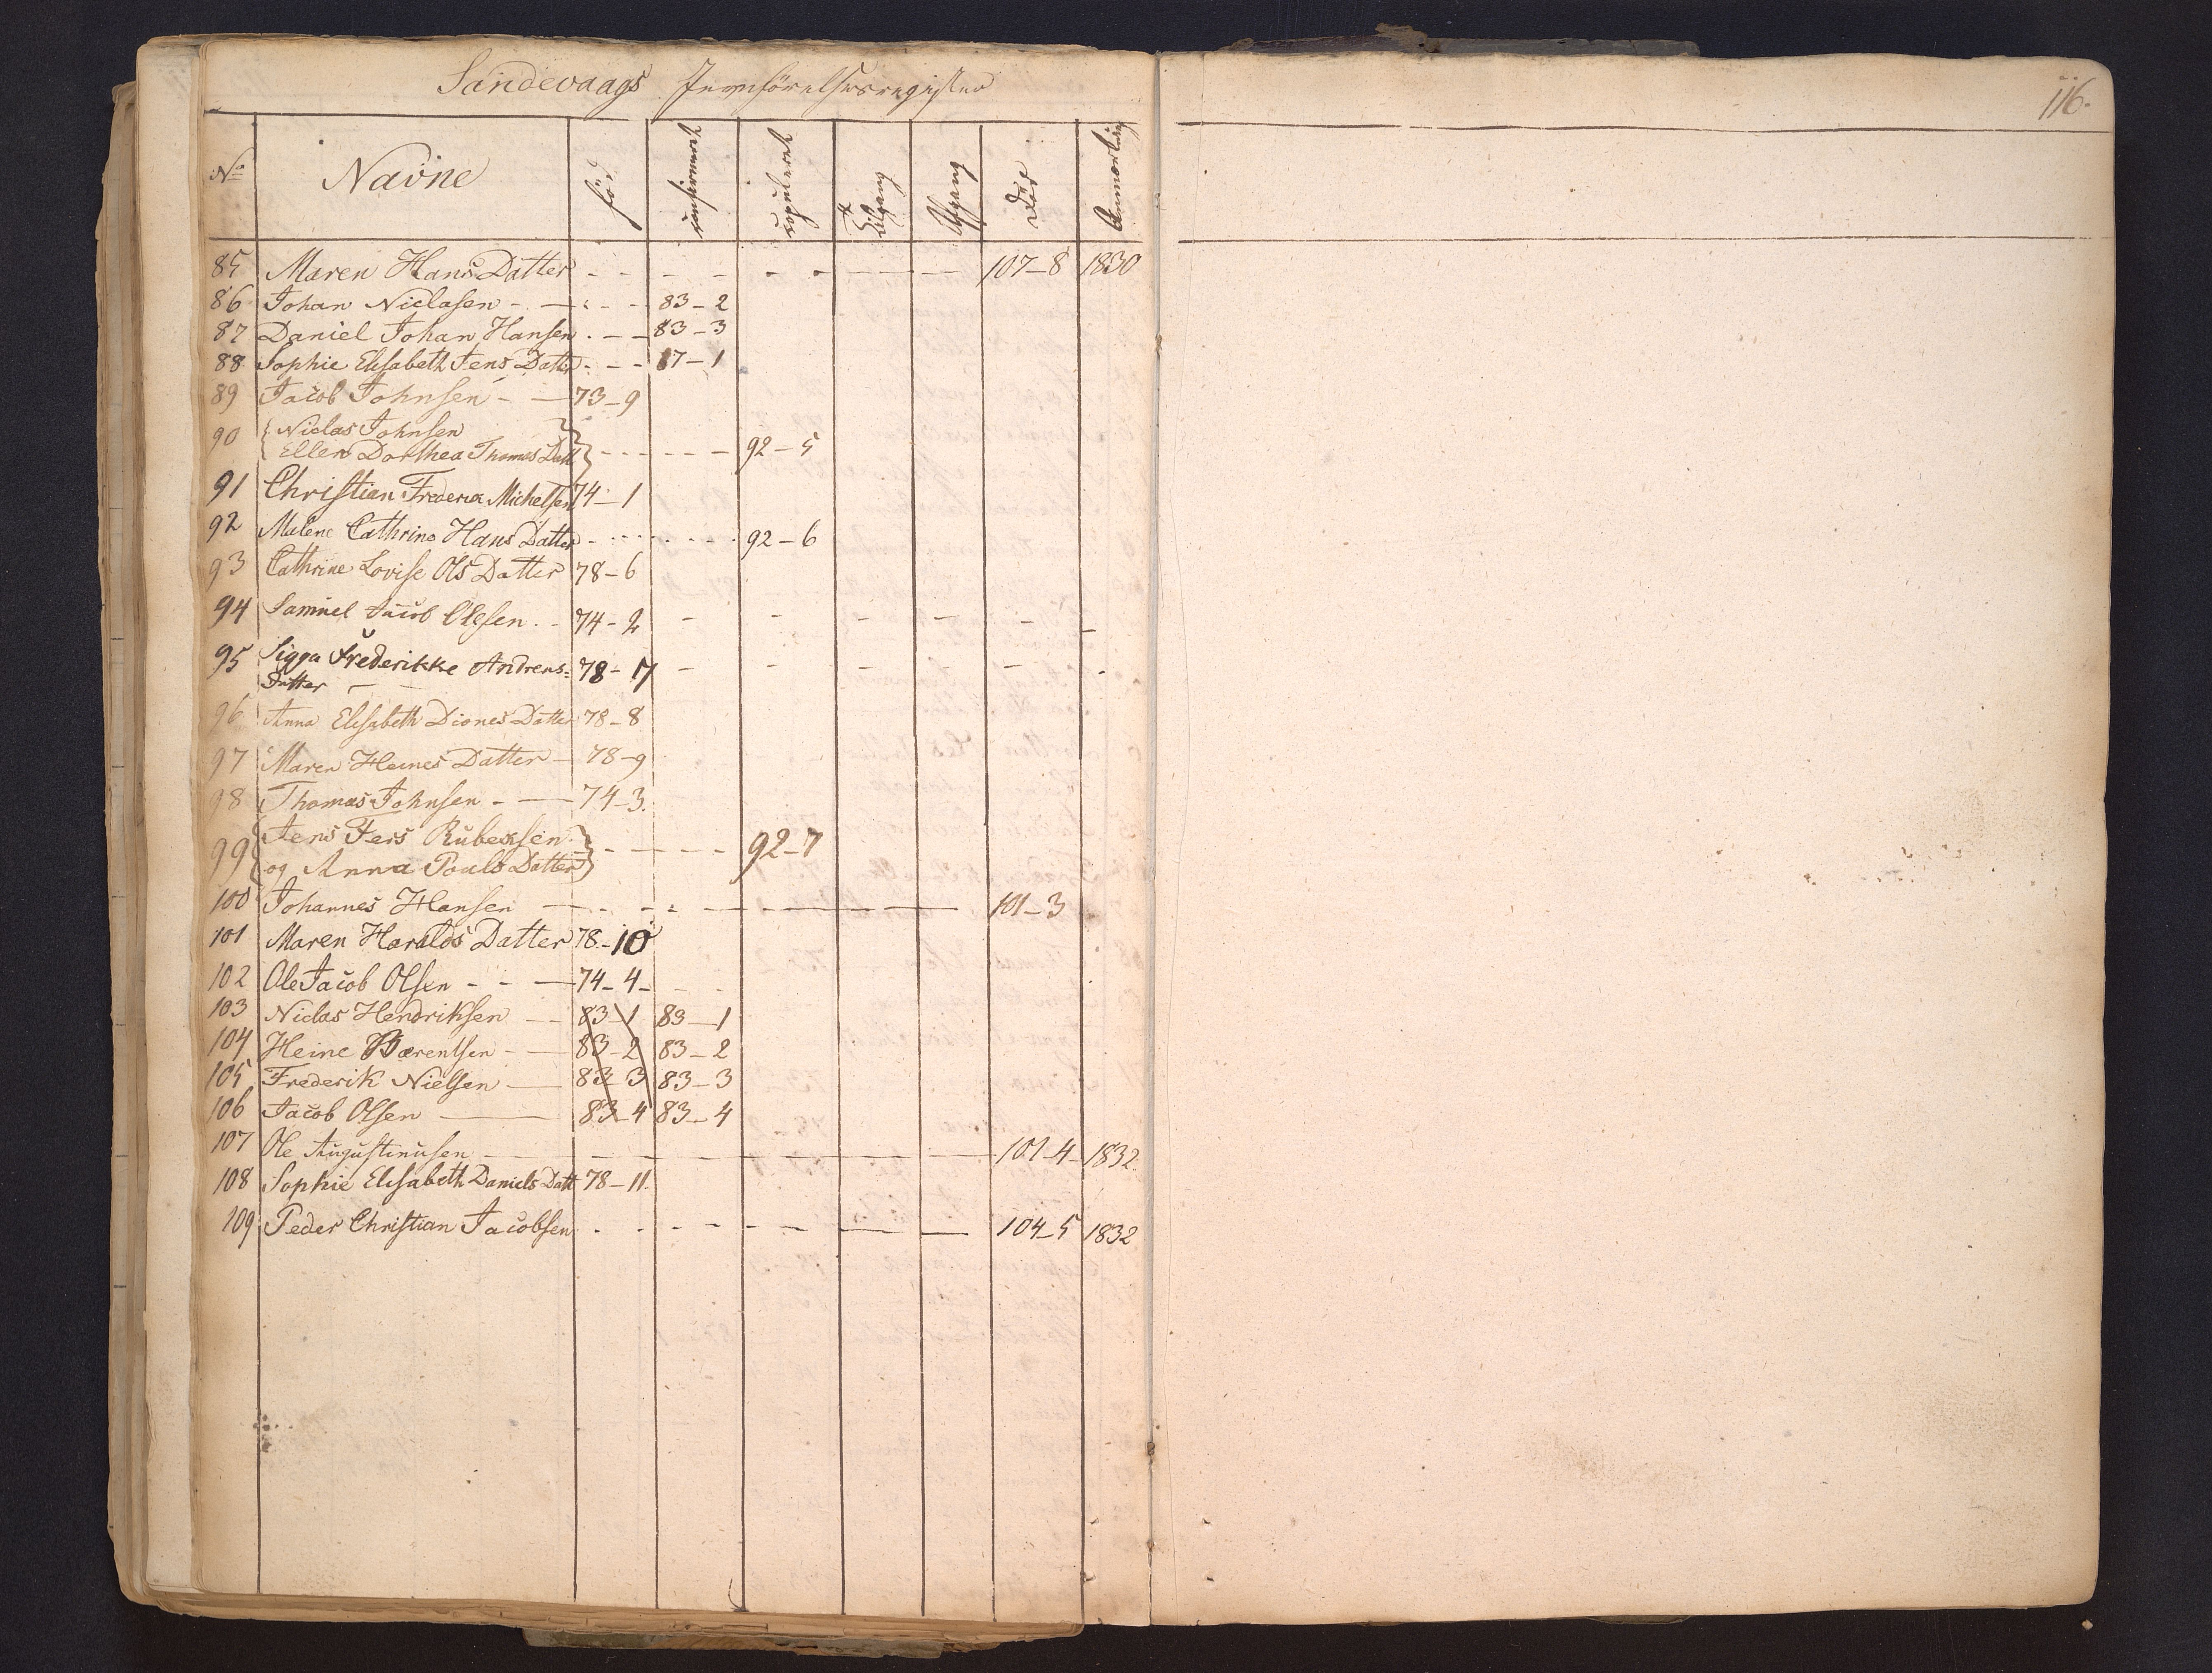 Sandevaags Jevnførelsesregister
116.
No Navne fød confirmeret copuleret Tilgang Afgang død Anmærkning
85 Maren Hans Datter - - - - - - - - 107-8 1830
86 Johan Niclasen - - - - 83-2
87 Daniel Johan Hansen . - - 83-3
88 Sophie Elisabeth Jens Datter - - - 87-1
89 Jacob Johnsen - - 73-9
90 { Niclas Johnsen
Ellen Dorthea Thomas Datt } - - - - - - 92-5
91 Christian Frederik Michelsen 74-1
92 Malene Cathrine Hans Datter - - - - - - 92-6
93 Cathrine Lovise Ols Datter 78-6
94 Samuel Jacob Olesen . - 74-2 - - - - - -
95 Sigga Frederikke Andreas= 78-7 - - - - - -
Datter
96 Anna Elisabeth Diones Datter 78-8
97 Maren Heines Datter - 78-9
98 Thomas Johnsen - - 74-3.
99 { Jens Jens Rubeksen
og Anna Pouls Datter } - - - - 92-7
100 Johannes Hansen - - - - - - - - 101-3
101 Maren Haralds Datter 78-10
102 Ole Jacob Olsen - - - 74-4-
103 Niclas Hendriksen - 83-1 83-1
104 Heine Bærentsen - - 83-2 83-2
105 Frederik Nielsen - 83-3 83-3
106 Jacob Olsen - 83-4 83-4
107 Ole Augustinusen - - - - - - - 101-4- 1832.
108 Sophie Elisabeth Daniels Datt 78-11.
109 Peder Christian Jacobsen . - - - - - - - 104-5 1832